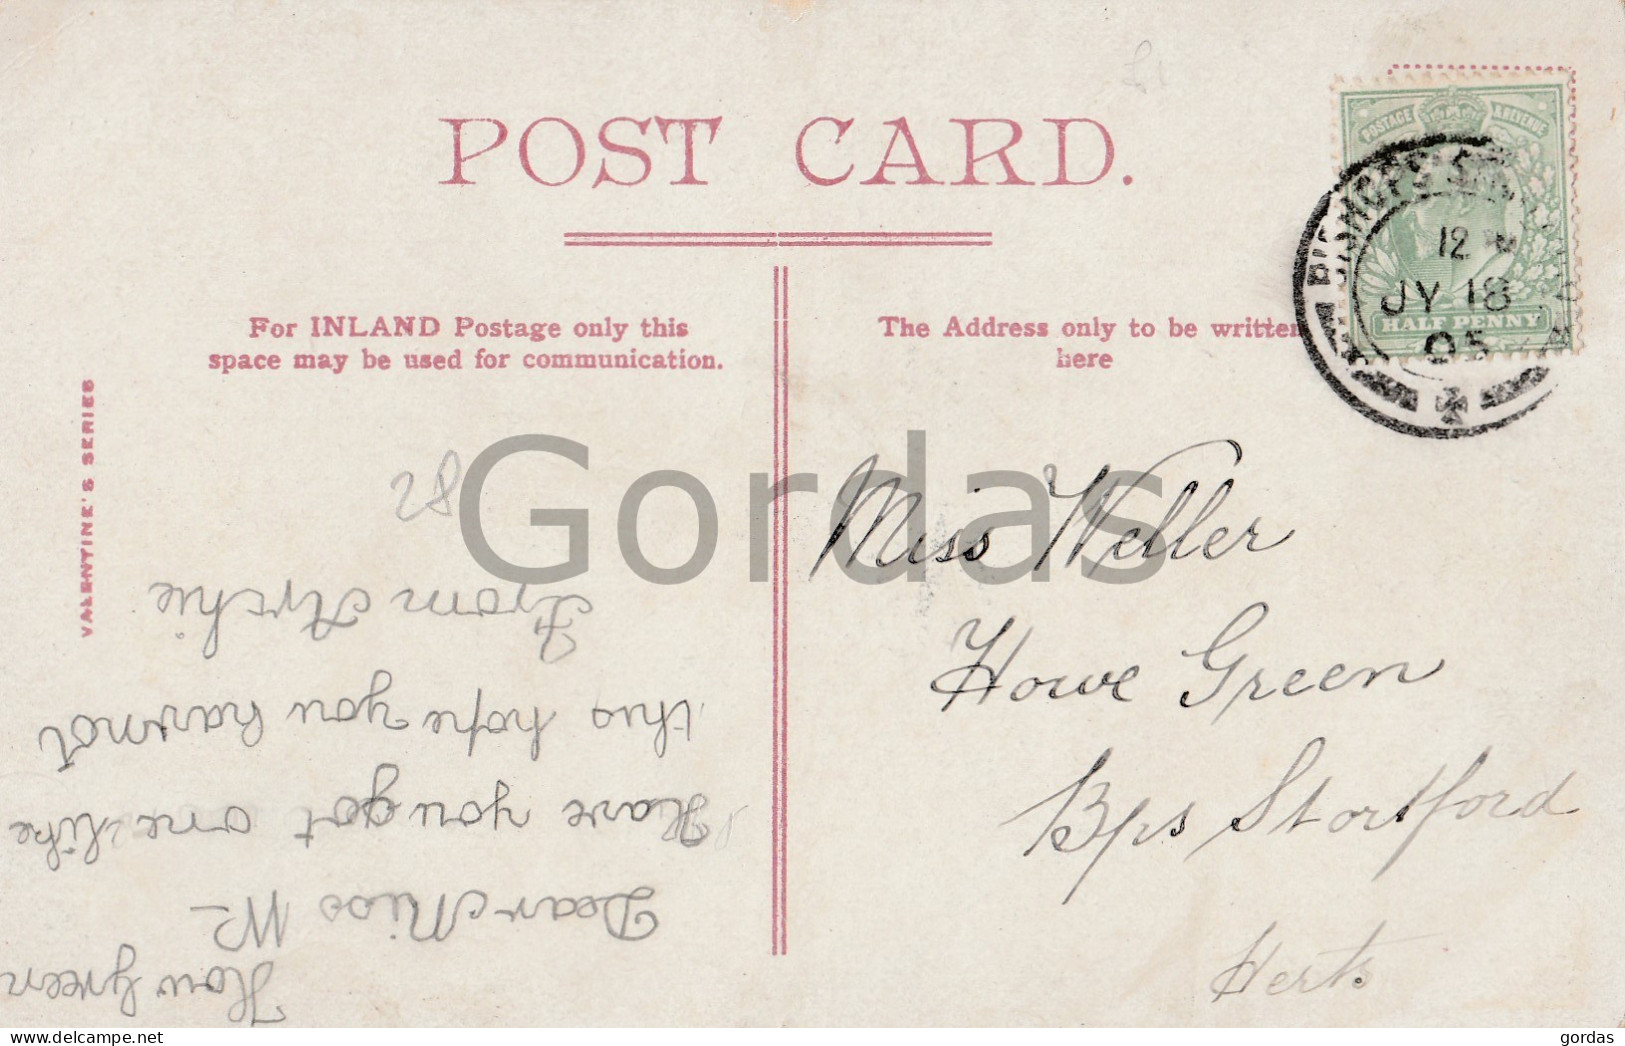 POST CARD.
For INLAND Postage only this
space may be used for communication.
The Address only to be written
here
VALENTINE'S SERIES
POSTAGE & REVENUE
HALF PENNY
BISHOP'S
12
JY 18
05
Gordas
28
£1
Miss Weller
Howe Green
Bps Stortford
Herts
How green
Dear Miss W
Have you got one like
this hope you have not
From Archie
gordas
delcampe.net